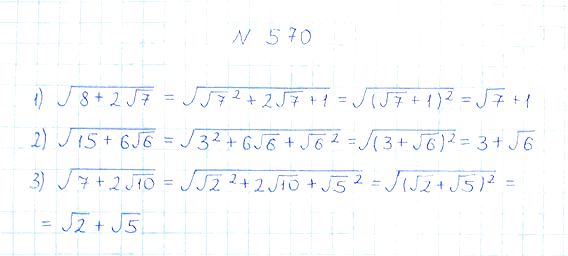 N 570
1) √(8 + 2√7) = √(√7² + 2√7 + 1) = √((√7 + 1)²) = √7 + 1
2) √(15 + 6√6) = √(3² + 6√6 + √6²) = √((3 + √6)²) = 3 + √6
3) √(7 + 2√10) = √(√2² + 2√10 + √5²) = √((√2 + √5)²) =
= √2 + √5